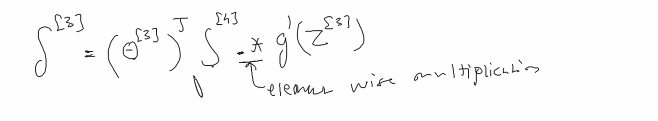 δ^[3] = (Θ^[3])^T δ^[4] .* g'(z^[3])
element wise multiplication